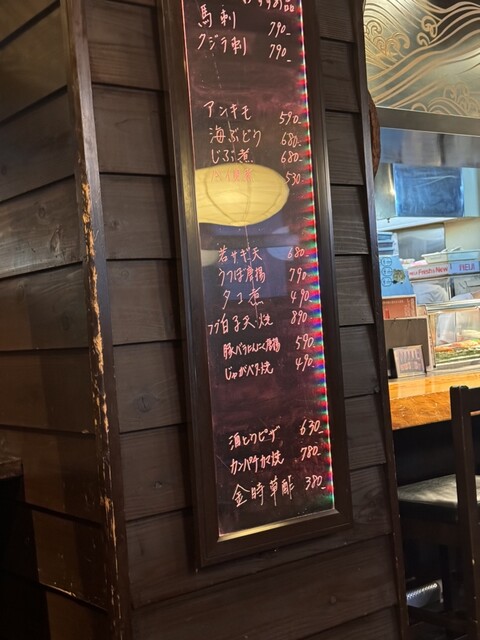 馬刺 790-
クジラ刺 790-
アンキモ 590-
海ぶどう 680-
じぶ煮 680-
530-
若サギ天 680-
うつぼ唐揚 790-
タコ煮 490-
フグ白子天・焼 890-
豚バラにんにく唐揚 590-
じゃがバター焼 490-
酒とうピザ 630-
カンパチカマ焼 780-
金時草酢 380-